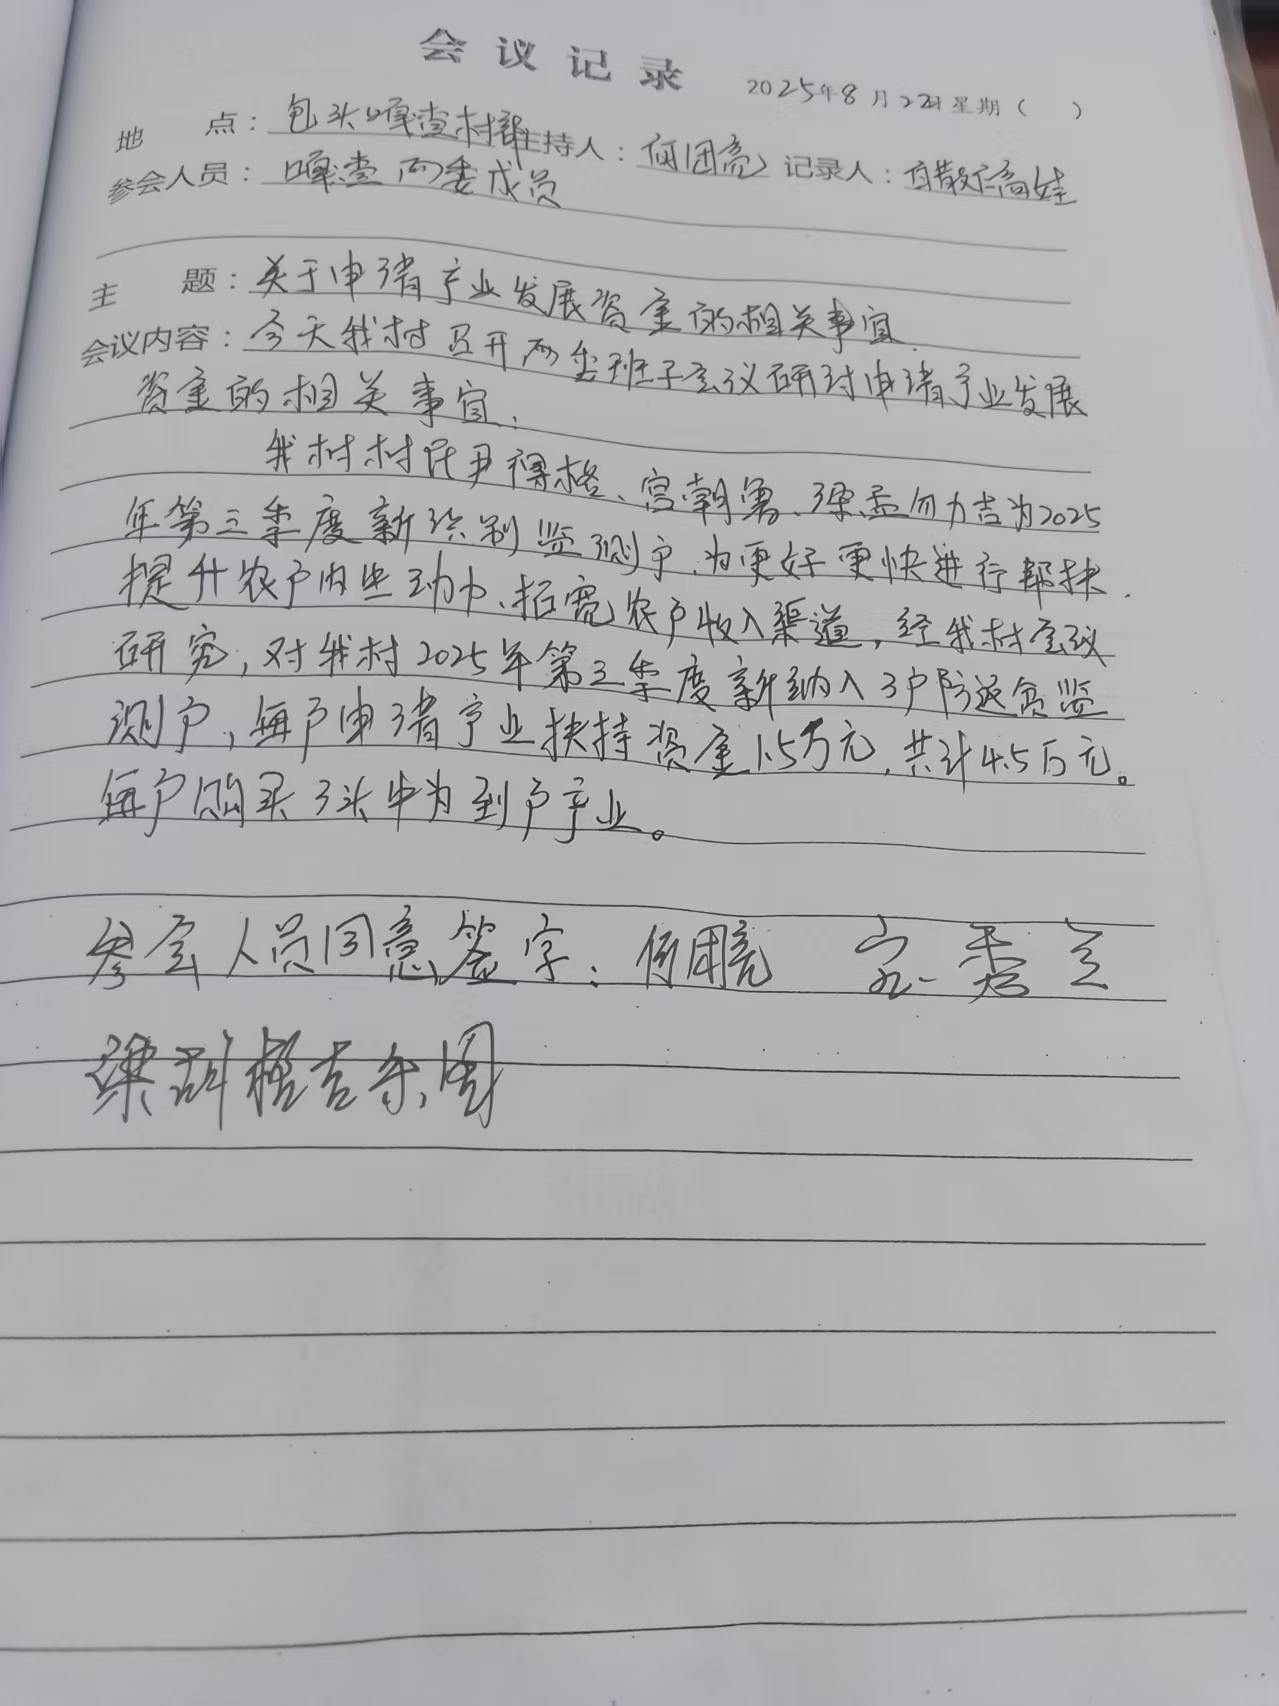 会议记录
2025年8月22日 星期（ ）
地 点：包头嘎查村部 主持人：何团亮 记录人：高娃
参会人员：嘎查两委成员
主 题：关于申请产业发展资金的相关事宜.
会议内容：今天我村召开两委班子会议研讨申请产业发展
资金的相关事宜.
我村村民尹得格、宫朝勇、孟勿力吉为2025
年第三季度新识别监测户,为更好更快进行帮扶.
提升农户内生动力、拓宽农户收入渠道,经我村会议
研究,对我村2025年第三季度新纳入3户防返贫监
测户,每户申请产业扶持资金1.5万元,共计4.5万元。
每户购买3头牛为到户产业。
参会人员同意签字：何团亮 秀兰
梁胡格吉乐图